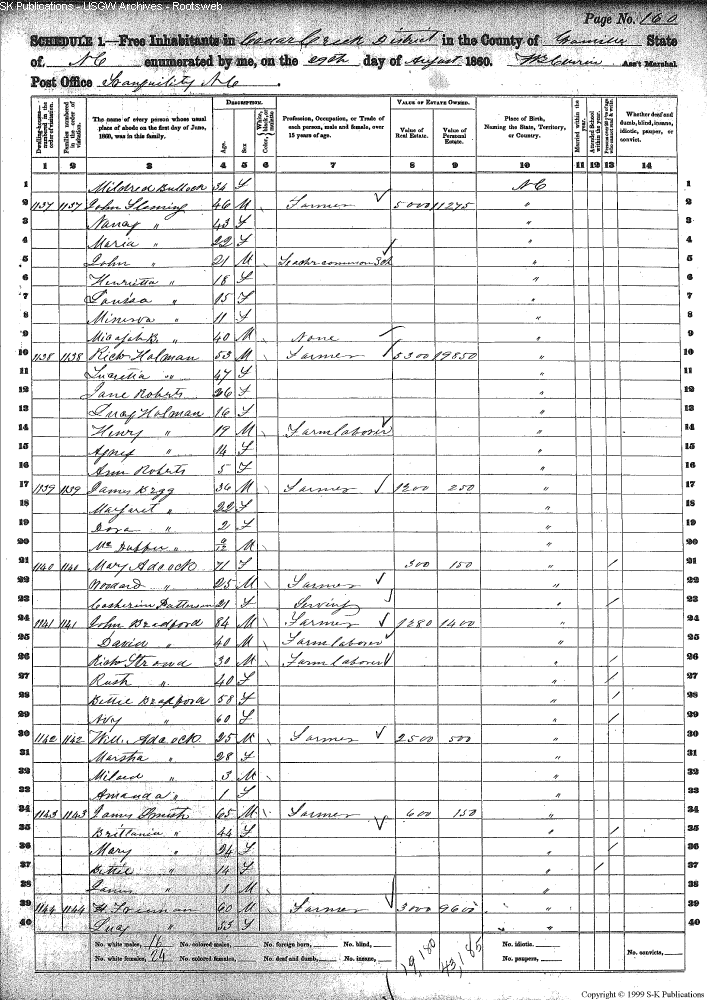 SK Publications - USGW Archives - Rootsweb
Page No. 160
SCHEDULE 1.—Free Inhabitants in Cedar Creek District in the County of Granville State
of N C enumerated by me, on the 29th day of August 1860. Ass't Marshal
Post Office Tranquility N C
Dwelling-houses— numbered in the order of visitation.
Families numbered in the order of visitation.
The name of every person whose usual place of abode on the first day of June, 1860, was in this family.
DESCRIPTION.
Age.
Sex.
Profession, Occupation, or Trade of each person, male and female, over 15 years of age.
VALUE OF ESTATE OWNED.
Value of Real Estate.
Value of Personal Estate.
Place of Birth, Naming the State, Territory, or Country.
Married within the year.
Attended School within the year.
Whether deaf and dumb, blind, insane, idiotic, pauper, or convict.
1 2 3 4 5 6 7 8 9 10 11 12 13 14
1 Mildred Bullock 34 F N C 1
2 1137 1137 John Fleming 46 M Farmer 5000 11275 " 2
3 Nancy " 43 F " 3
4 Maria " 22 F " 4
5 John " 21 M Teacher common Sch " 5
6 Henrietta " 18 F " 6
7 Louisa " 15 F " 7
8 Minerva " 11 F " 8
9 Micajah B. " 40 M None " 9
10 1138 1138 Rich Holman 53 M Farmer 5300 19850 " 10
11 Lucretia " 47 F " 11
12 Jane Roberts 26 F " 12
13 Lucy Holman 16 F " 13
14 Henry " 19 M Farm laborer " 14
15 Agnes " 14 F " 15
16 Ann Roberts 5 F " 16
17 1139 1139 James 36 M Farmer 1200 250 " 17
18 Margaret " 22 F " 18
19 Dora " 2 F " 19
20 " 9/12 M " 20
21 1140 1140 Mary Adcock 71 F 300 150 " 21
22 Woodard " 25 M Farmer " 22
23 Catherine Patterson 21 F Serving " 23
24 1141 1141 John Bradford 84 M Farmer 1280 1400 " 24
25 David " 40 M Farm laborer 25
26 Rich Strowd 30 M Farm laborer " 26
27 Ruth " 40 F " 27
28 Bettie Bradford 58 F " 28
29 Avy " 60 F " 29
30 1142 1142 Will. Adcock 25 M Farmer 2500 500 " 30
31 Marsha " 28 F " 31
32 " 3 M " 32
33 Amanda " 1 F " 33
34 1143 1143 James Smith 65 M Farmer 600 150 " 34
35 Brittania " 44 F " 35
36 Mary " 24 F " 36
37 Bettie " 14 F " 37
38 James " 1 M " 38
39 1144 1144 H Freeman 60 M Farmer 3000 9600 " 39
40 Lucy " 53 F " 40
No. white males, 16 No. colored males, No. foreign born, No. blind, No. idiotic,
No. white females, 24 No. colored females, No. deaf and dumb, No. insane, 19,180 43,185 No. paupers, No. convicts,
Copyright © 1999 S-K Publications